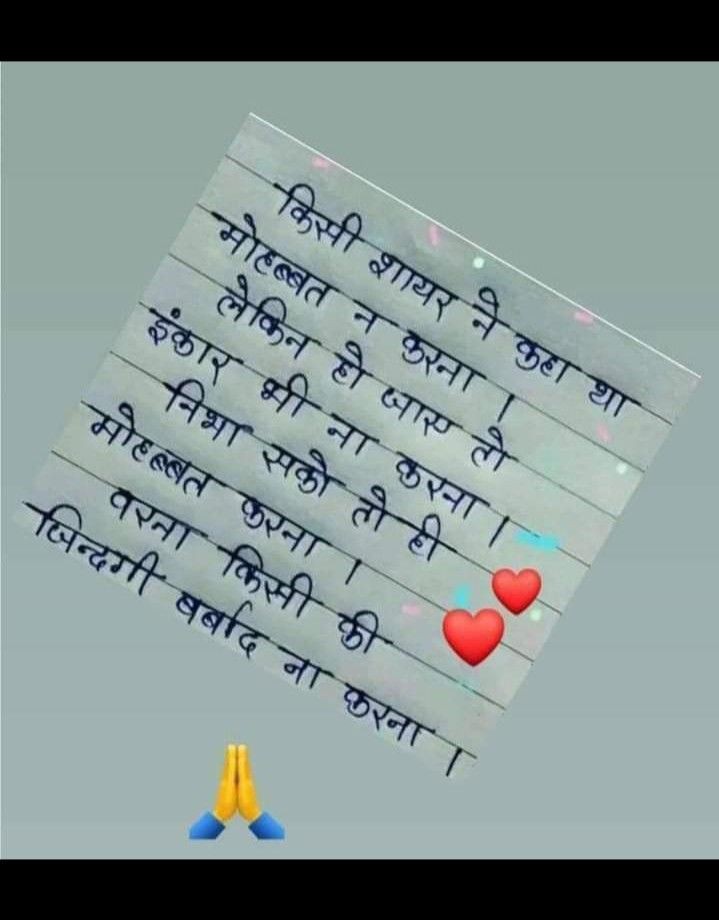 किसी शायर ने कहा था
मोहब्बत न करना ।
लेकिन हो जाए तो
इंकार भी ना करना ।
निभा सको तो ही
मोहब्बत करना ।
वरना किसी की
जिन्दगी बर्बाद ना करना ।